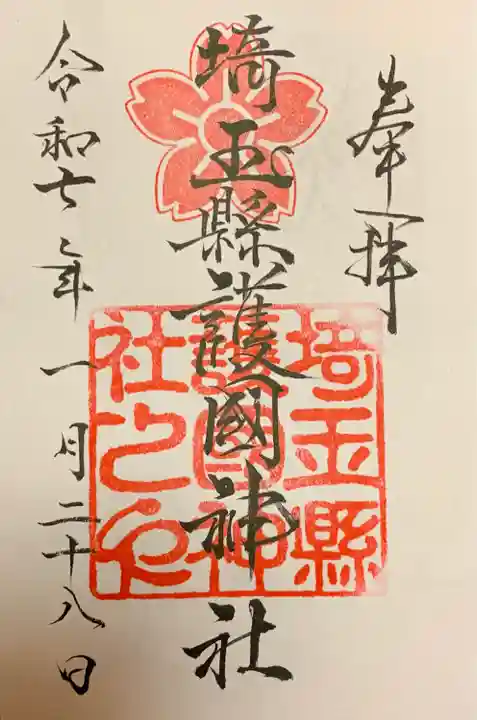 奉拝
埼玉縣護國神社
令和七年一月二十八日
埼玉縣
護國神
社之印